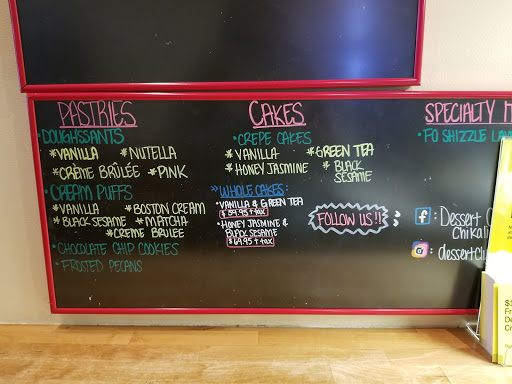 PASTRIES
•DOUGHSSANTS
*VANILLA *NUTELLA
*CRÈME BRÛLÉE *PINK
•CREAM PUFFS
*VANILLA *BOSTON CREAM
*BLACK SESAME *MATCHA
*CREME BRULEE
•CHOCOLATE CHIP COOKIES
•FROSTED PECANS
CAKES
•CREPE CAKES
*VANILLA *GREEN TEA
*HONEY JASMINE *BLACK SESAME
WHOLE CAKES:
•VANILLA & GREEN TEA
$59.95 + tax
•HONEY JASMINE &
BLACK SESAME
$69.95 + tax
FOLLOW US!! :
SPECIALTY
•FO SHIZZLE
f : Dessert
Chikali
: dessertcl